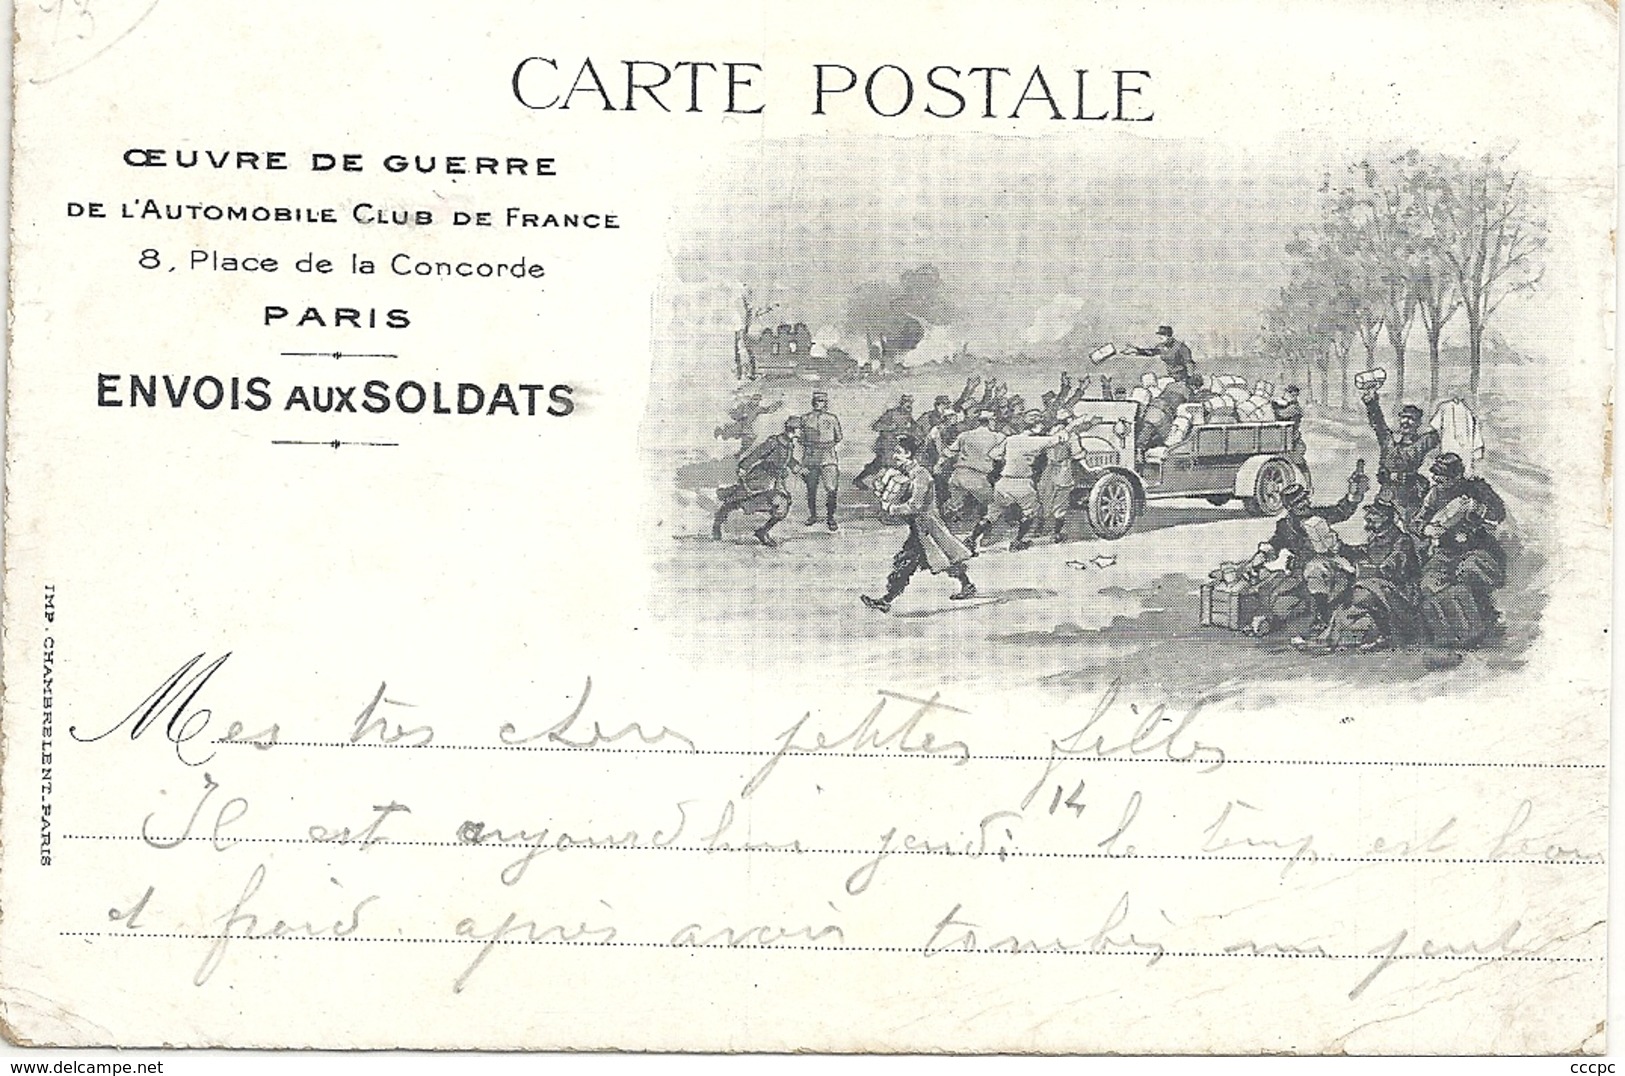 CARTE POSTALE
ŒUVRE DE GUERRE
DE L'AUTOMOBILE CLUB DE FRANCE
8, Place de la Concorde
PARIS
ENVOIS AUX SOLDATS
IMP. CHAMBRELENT_PARIS
Mes tres cheres petites filles
Il est aujourdhui jeudi 14 le temp est beau
et froid. après avoir tombés un peut
delcampe.net
cccpc